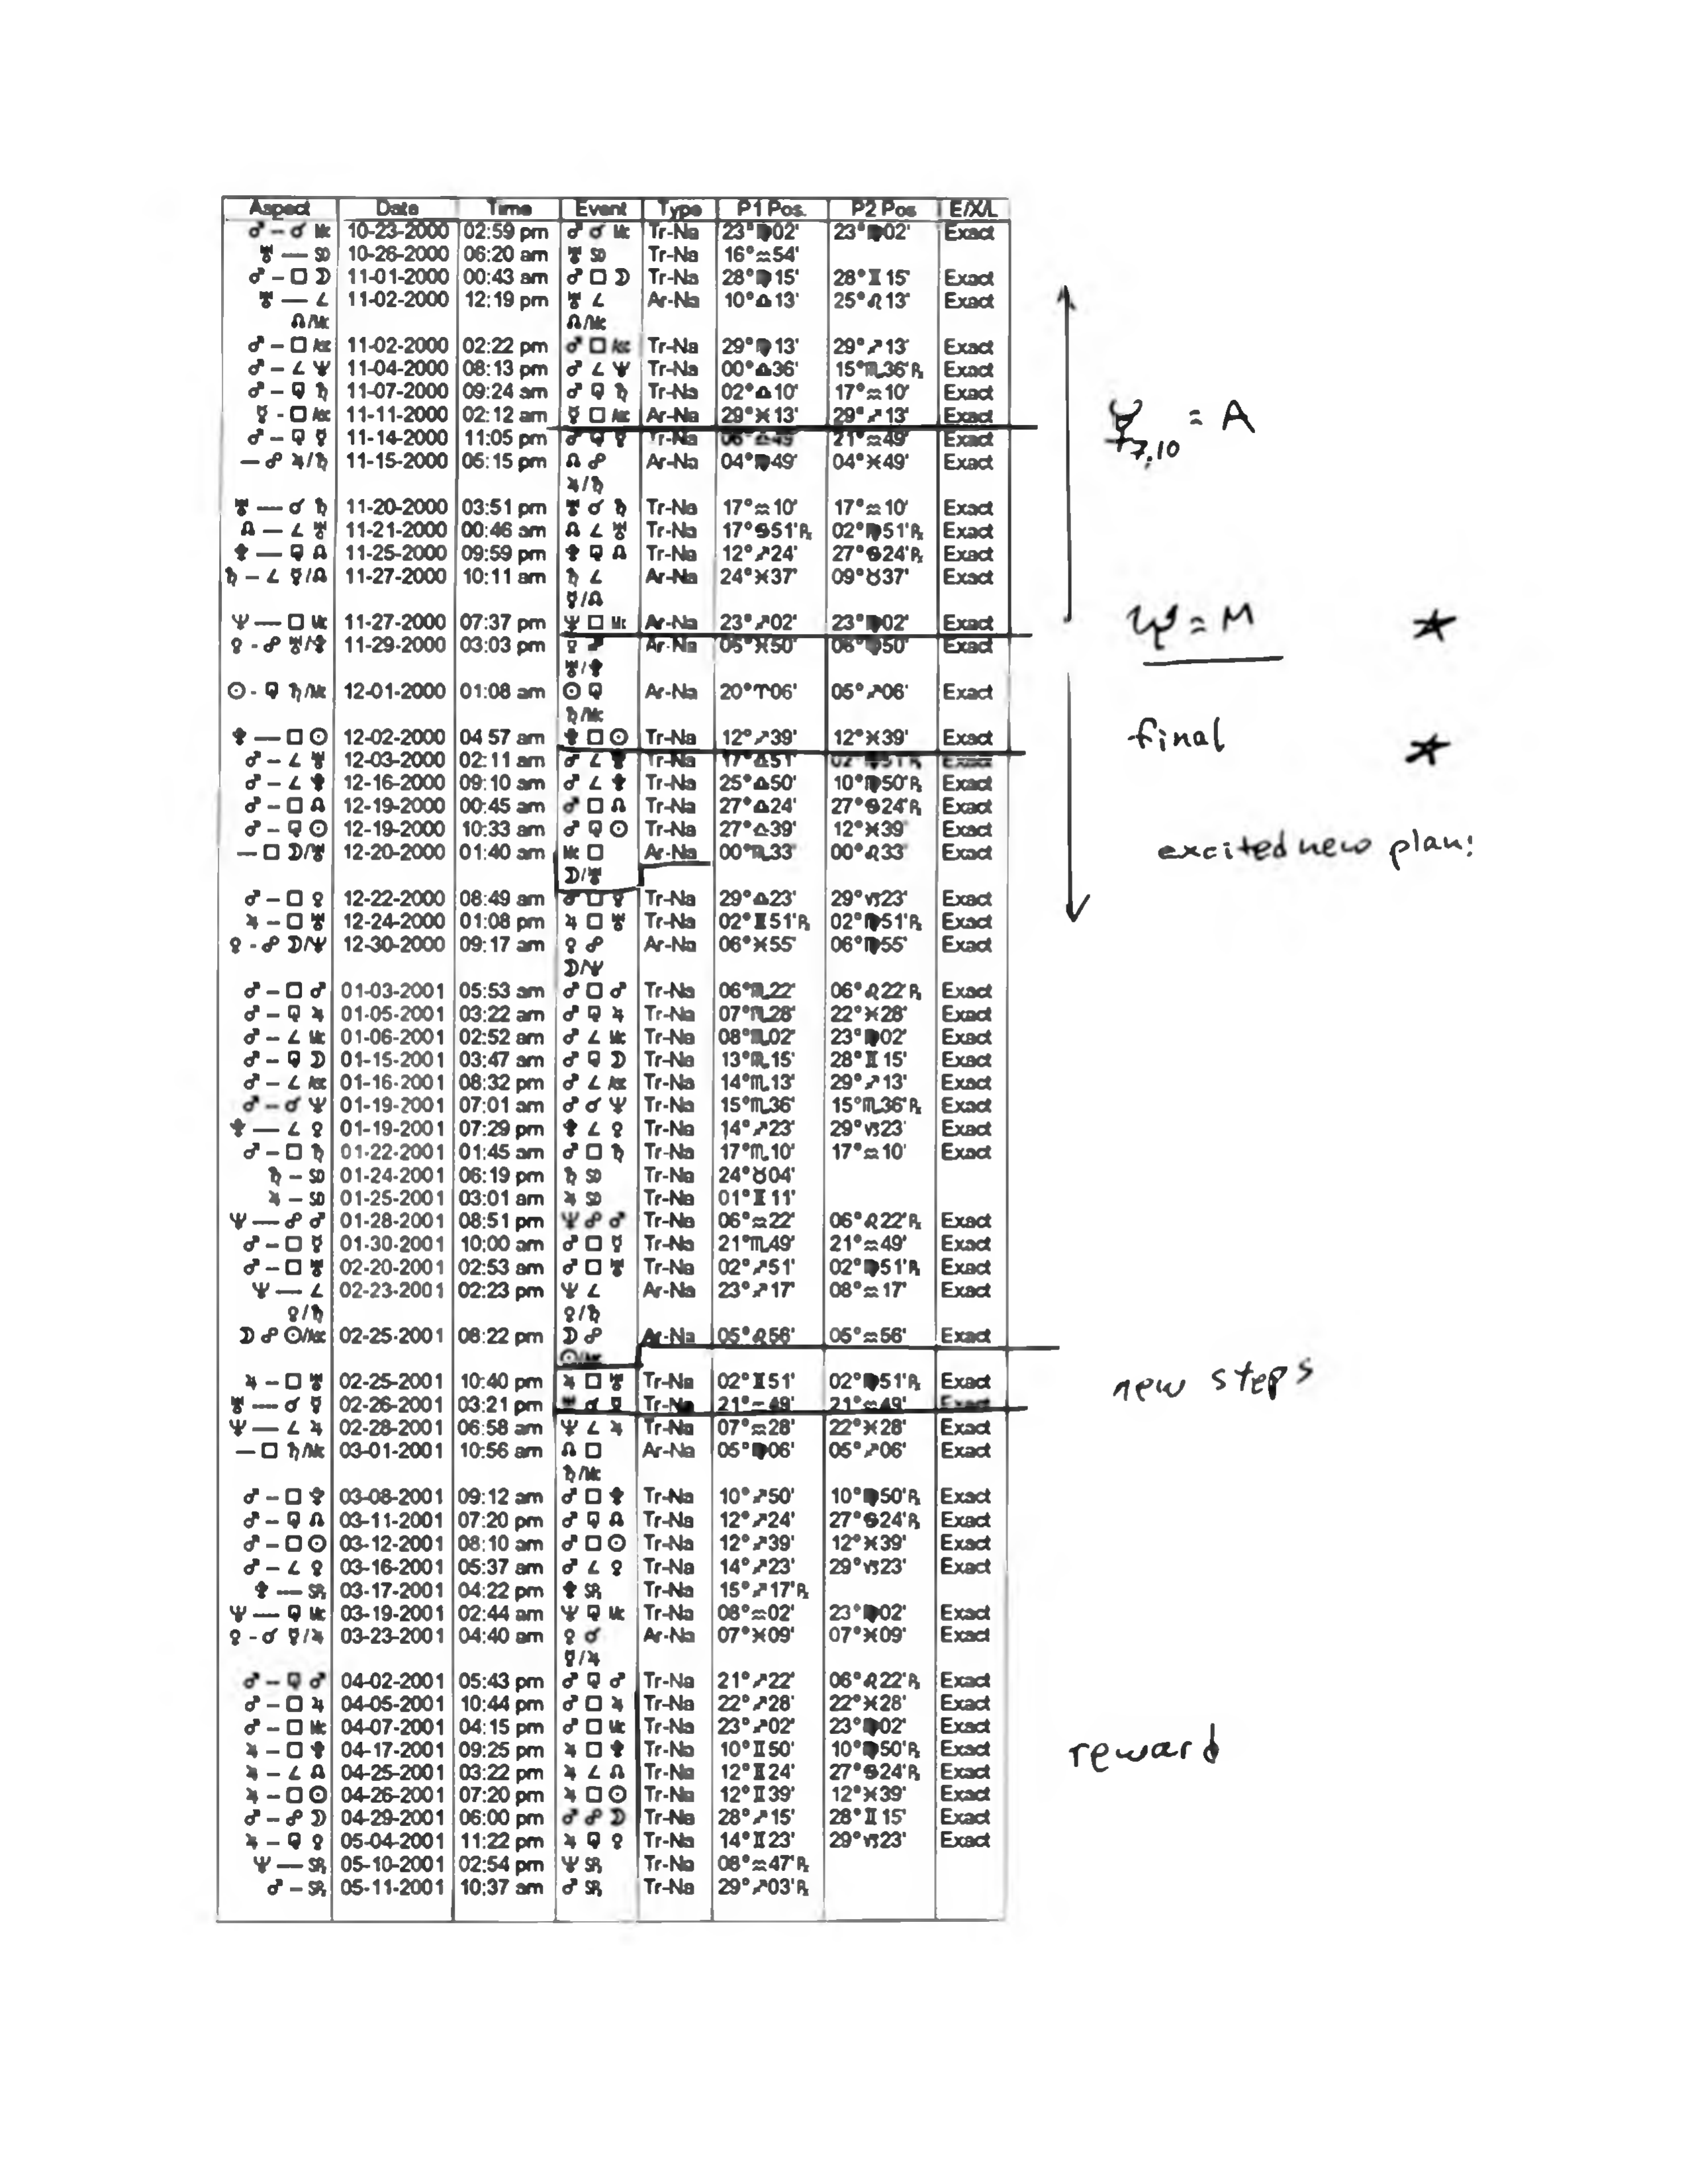 Aspect Date Time Event Type P1 Pos. P2 Pos E/X/L
♂ – ☌ Mc 10-23-2000 02:59 pm ♂ ☌ Mc Tr-Na 23°♍02' 23°♍02' Exact
♅ — SD 10-26-2000 06:20 am ♅ SD Tr-Na 16°♒54'
♂ – □ ☽ 11-01-2000 00:43 am ♂ □ ☽ Tr-Na 28°♍15' 28°♊15' Exact
♅ — ∠ 11-02-2000 12:19 pm ♅ ∠ Ar-Na 10°♎13' 25°♌13' Exact
☊/Mc ☊/Mc
♂ – □ Asc 11-02-2000 02:22 pm ♂ □ Asc Tr-Na 29°♍13' 29°♐13' Exact
♂ – ∠ ♆ 11-04-2000 08:13 pm ♂ ∠ ♆ Tr-Na 00°♎36' 15°♏36'℞ Exact
♂ – ⚼ ♄ 11-07-2000 09:24 am ♂ ⚼ ♄ Tr-Na 02°♎10' 17°♒10' Exact
☿ - □ Asc 11-11-2000 02:12 am ☿ □ Asc Ar-Na 29°♓13' 29°♐13' Exact
♂ – ⚼ ☿ 11-14-2000 11:05 pm ♂ ⚼ ☿ Tr-Na 06°♎49' 21°♒49' Exact
— ☍ ♃/♄ 11-15-2000 05:15 pm ☊ ☍ Ar-Na 04°♍49' 04°♓49' Exact
♃/♄
♅ — ☌ ♄ 11-20-2000 03:51 pm ♅ ☌ ♄ Tr-Na 17°♒10' 17°♒10' Exact
☊ — ∠ ♅ 11-21-2000 00:46 am ☊ ∠ ♅ Tr-Na 17°♋51'℞ 02°♍51'℞ Exact
♇ — ⚼ ☊ 11-25-2000 09:59 pm ♇ ⚼ ☊ Tr-Na 12°♐24' 27°♋24'℞ Exact
♄ – ∠ ☿/☊ 11-27-2000 10:11 am ♄ ∠ Ar-Na 24°♓37' 09°♉37' Exact
☿/☊
♆ — □ Mc 11-27-2000 07:37 pm ♆ □ Mc Ar-Na 23°♐02' 23°♍02' Exact
♀ - ☍ ♅/♇ 11-29-2000 03:03 pm ♀ ☍ Ar-Na 06°♓50' 06°♍50' Exact
♅/♇
☉ - ⚼ ♄/Mc 12-01-2000 01:08 am ☉ ⚼ Ar-Na 20°♈06' 05°♐06' Exact
♄/Mc
♇ — □ ☉ 12-02-2000 04 57 am ♇ □ ☉ Tr-Na 12°♐39' 12°♓39' Exact
♂ – ∠ ♅ 12-03-2000 02:11 am ♂ ∠ ♅ Tr-Na 17°♎51' 02°♍51'℞ Exact
♂ – ∠ ♇ 12-16-2000 09:10 am ♂ ∠ ♇ Tr-Na 25°♎50' 10°♍50'℞ Exact
♂ – □ ☊ 12-19-2000 00:45 am ♂ □ ☊ Tr-Na 27°♎24' 27°♋24'℞ Exact
♂ – ⚼ ☉ 12-19-2000 10:33 am ♂ ⚼ ☉ Tr-Na 27°♎39' 12°♓39' Exact
— □ ☽/♅ 12-20-2000 01:40 am Mc □ Ar-Na 00°♏33' 00°♌33' Exact
☽/♅
♂ – □ ♀ 12-22-2000 08:49 am ♂ □ ♀ Tr-Na 29°♎23' 29°♑23' Exact
♃ – □ ♅ 12-24-2000 01:08 pm ♃ □ ♅ Tr-Na 02°♊51'℞ 02°♍51'℞ Exact
♀ - ☍ ☽/♆ 12-30-2000 09:17 am ♀ ☍ Ar-Na 06°♓55' 06°♍55' Exact
☽/♆
♂ – □ ♂ 01-03-2001 05:53 am ♂ □ ♂ Tr-Na 06°♏22' 06°♌22'℞ Exact
♂ – ⚼ ♃ 01-05-2001 03:22 am ♂ ⚼ ♃ Tr-Na 07°♏28' 22°♓28' Exact
♂ – ∠ Mc 01-06-2001 02:52 am ♂ ∠ Mc Tr-Na 08°♏02' 23°♍02' Exact
♂ – ⚼ ☽ 01-15-2001 03:47 am ♂ ⚼ ☽ Tr-Na 13°♏15' 28°♊15' Exact
♂ – ∠ Asc 01-16-2001 08:32 pm ♂ ∠ Asc Tr-Na 14°♏13' 29°♐13' Exact
♂ – ☌ ♆ 01-19-2001 07:01 am ♂ ☌ ♆ Tr-Na 15°♏36' 15°♏36'℞ Exact
♇ — ∠ ♀ 01-19-2001 07:29 pm ♇ ∠ ♀ Tr-Na 14°♐23' 29°♑23' Exact
♂ – □ ♄ 01-22-2001 01:45 am ♂ □ ♄ Tr-Na 17°♏10' 17°♒10' Exact
♄ – SD 01-24-2001 06:19 pm ♄ SD Tr-Na 24°♉04'
♃ – SD 01-25-2001 03:01 am ♃ SD Tr-Na 01°♊11'
♆ — ☍ ♂ 01-28-2001 08:51 pm ♆ ☍ ♂ Tr-Na 06°♒22' 06°♌22'℞ Exact
♂ – □ ☿ 01-30-2001 10:00 am ♂ □ ☿ Tr-Na 21°♏49' 21°♒49' Exact
♂ – □ ♅ 02-20-2001 02:53 am ♂ □ ♅ Tr-Na 02°♐51' 02°♍51'℞ Exact
♆ — ∠ 02-23-2001 02:23 pm ♆ ∠ Ar-Na 23°♐17' 08°♒17' Exact
♀/♄ ♀/♄
☽ ☍ ☉/Asc 02-25-2001 08:22 pm ☽ ☍ Ar-Na 05°♌56' 05°♒56' Exact
☉/Asc
♃ – □ ♅ 02-25-2001 10:40 pm ♃ □ ♅ Tr-Na 02°♊51' 02°♍51'℞ Exact
♅ — ☌ ☿ 02-26-2001 03:21 pm ♅ ☌ ☿ Tr-Na 21°♒49' 21°♒49' Exact
♆ — ∠ ♃ 02-28-2001 06:58 am ♆ ∠ ♃ Tr-Na 07°♒28' 22°♓28' Exact
— □ ♄/Mc 03-01-2001 10:56 am ☊ □ Ar-Na 05°♍06' 05°♐06' Exact
♄/Mc
♂ – □ ♇ 03-08-2001 09:12 am ♂ □ ♇ Tr-Na 10°♐50' 10°♍50'℞ Exact
♂ – ⚼ ☊ 03-11-2001 07:20 pm ♂ ⚼ ☊ Tr-Na 12°♐24' 27°♋24'℞ Exact
♂ – □ ☉ 03-12-2001 08:10 am ♂ □ ☉ Tr-Na 12°♐39' 12°♓39' Exact
♂ – ∠ ♀ 03-16-2001 05:37 am ♂ ∠ ♀ Tr-Na 14°♐23' 29°♑23' Exact
♇ — S℞ 03-17-2001 04:22 pm ♇ S℞ Tr-Na 15°♐17'℞
♆ — ⚼ Mc 03-19-2001 02:44 am ♆ ⚼ Mc Tr-Na 08°♒02' 23°♍02' Exact
♀ - ☌ ☿/♃ 03-23-2001 04:40 am ♀ ☌ Ar-Na 07°♓09' 07°♓09' Exact
☿/♃
♂ – ⚼ ♂ 04-02-2001 05:43 pm ♂ ⚼ ♂ Tr-Na 21°♐22' 06°♌22'℞ Exact
♂ – □ ♃ 04-05-2001 10:44 pm ♂ □ ♃ Tr-Na 22°♐28' 22°♓28' Exact
♂ – □ Mc 04-07-2001 04:15 pm ♂ □ Mc Tr-Na 23°♐02' 23°♍02' Exact
♃ – □ ♇ 04-17-2001 09:25 pm ♃ □ ♇ Tr-Na 10°♊50' 10°♍50'℞ Exact
♃ – ∠ ☊ 04-25-2001 03:22 pm ♃ ∠ ☊ Tr-Na 12°♊24' 27°♋24'℞ Exact
♃ – □ ☉ 04-26-2001 07:20 pm ♃ □ ☉ Tr-Na 12°♊39' 12°♓39' Exact
♂ – ☍ ☽ 04-29-2001 06:00 pm ♂ ☍ ☽ Tr-Na 28°♐15' 28°♊15' Exact
♃ – ⚼ ♀ 05-04-2001 11:22 pm ♃ ⚼ ♀ Tr-Na 14°♊23' 29°♑23' Exact
♆ — S℞ 05-10-2001 02:54 pm ♆ S℞ Tr-Na 08°♒47'℞
♂ – S℞ 05-11-2001 10:37 am ♂ S℞ Tr-Na 29°♐03'℞
☿7,10 = A
♆ = M ★
final ★
excited new plan!
new steps
reward